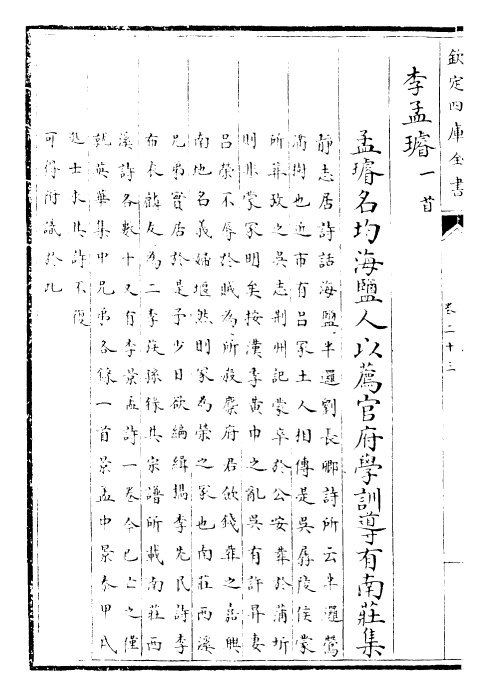 欽定四庫全書
卷二十三
李孟璿一首
孟璿名均海鹽人以薦官府學訓導有南莊集
靜志居詩話海鹽半邏劉長卿詩所云半邏鶯
滿樹也近市有吕冢土人相傳是吳孱陵侯蒙
所葬攷之吳志荆州記蒙卒於公安葬於蒲圻
則非蒙冢明矣按漢季黄巾之亂吳有許昇妻
吕榮不辱於賊為所殺糜府君歛錢葬之嘉興
南地名義婦堰然則冢為榮之冢也南莊西溪
兄弟實居於是予少日欲編緝檇李先民詩李
布衣麟友為二李族孫録其宗譜所載南莊西
溪詩各數十又有李景孟詩一卷今已亡之僅
就英華集中兄弟各録一首景孟中景泰甲戌
進士求其詩不復
可得附議於此